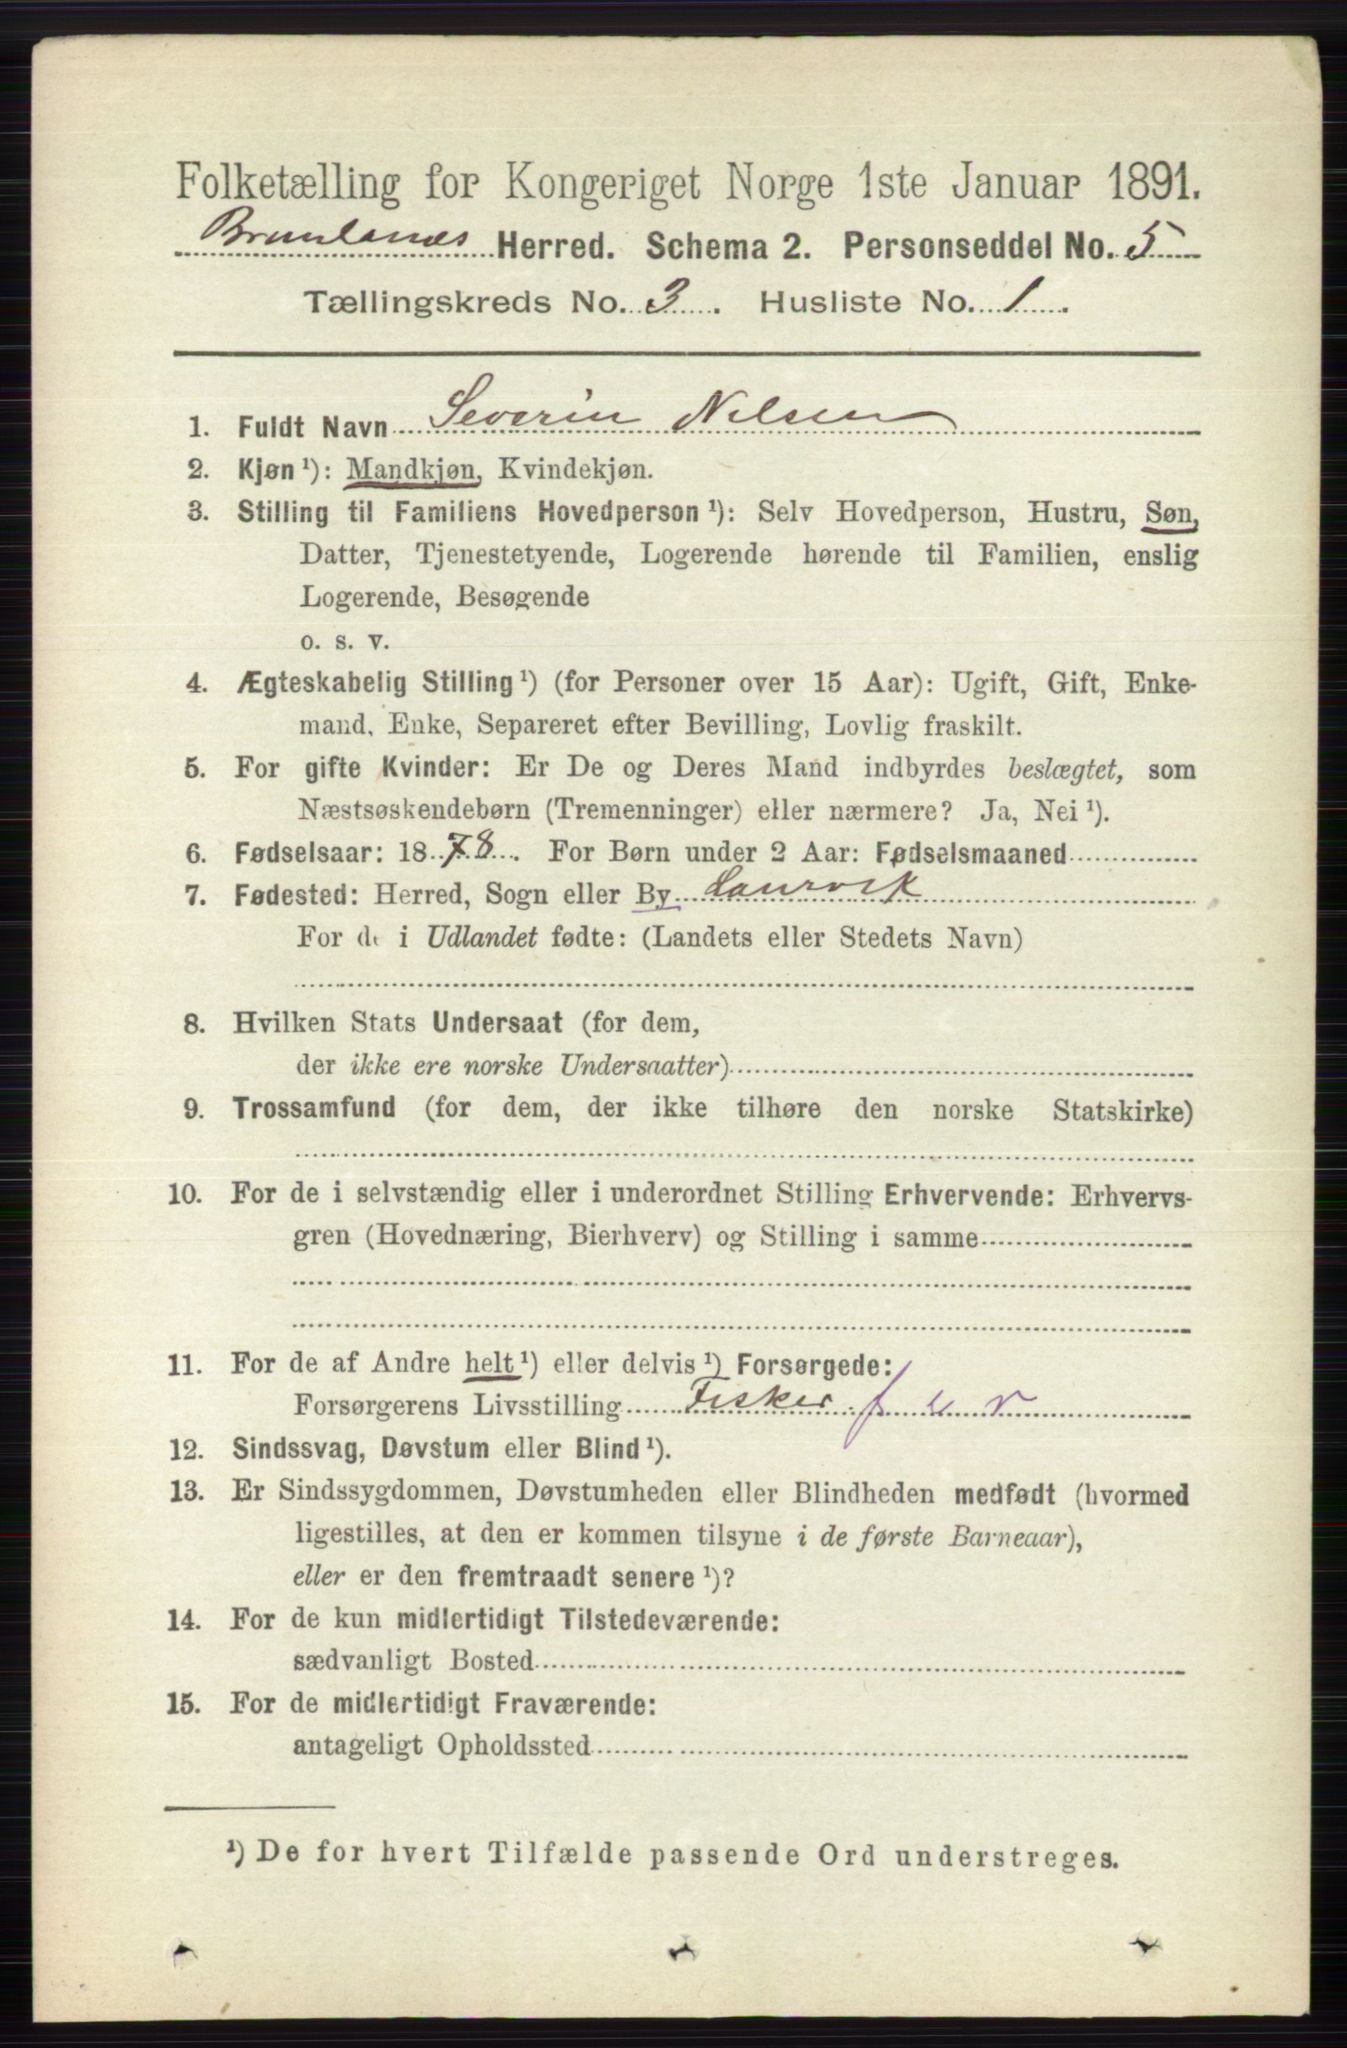 Folketælling for Kongeriget Norge 1ste Januar 1891.
Brunlanæs Herred. Schema 2. Personseddel No. 5
Tællingskreds No. 3. Husliste No. 1.
1. Fuldt Navn Severin Nilsen
2. Kjøn ¹): Mandkjøn, Kvindekjøn.
3. Stilling til Familiens Hovedperson ¹): Selv Hovedperson, Hustru, Søn,
Datter, Tjenestetyende, Logerende hørende til Familien, enslig
Logerende, Besøgende
o. s. v.
4. Ægteskabelig Stilling ¹) (for Personer over 15 Aar): Ugift, Gift, Enke-
mand, Enke, Separeret efter Bevilling, Lovlig fraskilt.
5. For gifte Kvinder: Er De og Deres Mand indbyrdes beslægtet, som
Næstsøskendebørn (Tremenninger) eller nærmere? Ja, Nei ¹).
6. Fødselsaar: 1878. For Børn under 2 Aar: Fødselsmaaned
7. Fødested: Herred, Sogn eller By Laurvik
For de i Udlandet fødte: (Landets eller Stedets Navn)
8. Hvilken Stats Undersaat (for dem,
der ikke ere norske Undersaatter)
9. Trossamfund (for dem, der ikke tilhøre den norske Statskirke)
10. For de i selvstændig eller i underordnet Stilling Erhvervende: Erhvervs-
gren (Hovednæring, Bierhverv) og Stilling i samme
11. For de af Andre helt ¹) eller delvis ¹) Forsørgede:
Forsørgerens Livsstilling Fisker
12. Sindssvag, Døvstum eller Blind ¹).
13. Er Sindssygdommen, Døvstumheden eller Blindheden medfødt (hvormed
ligestilles, at den er kommen tilsyne i de første Barneaar),
eller er den fremtraadt senere ¹)?
14. For de kun midlertidigt Tilstedeværende:
sædvanligt Bosted
15. For de midlertidigt Fraværende:
antageligt Opholdssted
¹) De for hvert Tilfælde passende Ord understreges.